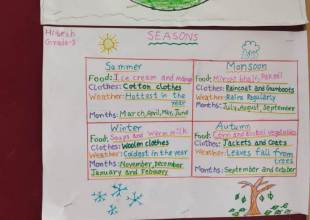 Hitesh
Grade-3
SEASONS
Summer
Food: Ice cream and mango
Clothes: Cotton clothes
Weather: Hottest in the
year
Months: March, April, May, June
Monsoon
Food: Mirchi bhaji,
Clothes: Raincoat and Gumboots
Weather: Rains Regularly
Months: July, August, September
Winter
Food: Soups and warm milk
Clothes: Woolen clothes
Weather: Coldest in the year
Months: November, December,
January and February
Autumn
Food: Corn and vegetables
Clothes: Jackets and Coats
Weather: Leaves fall from
trees
Months: September and October